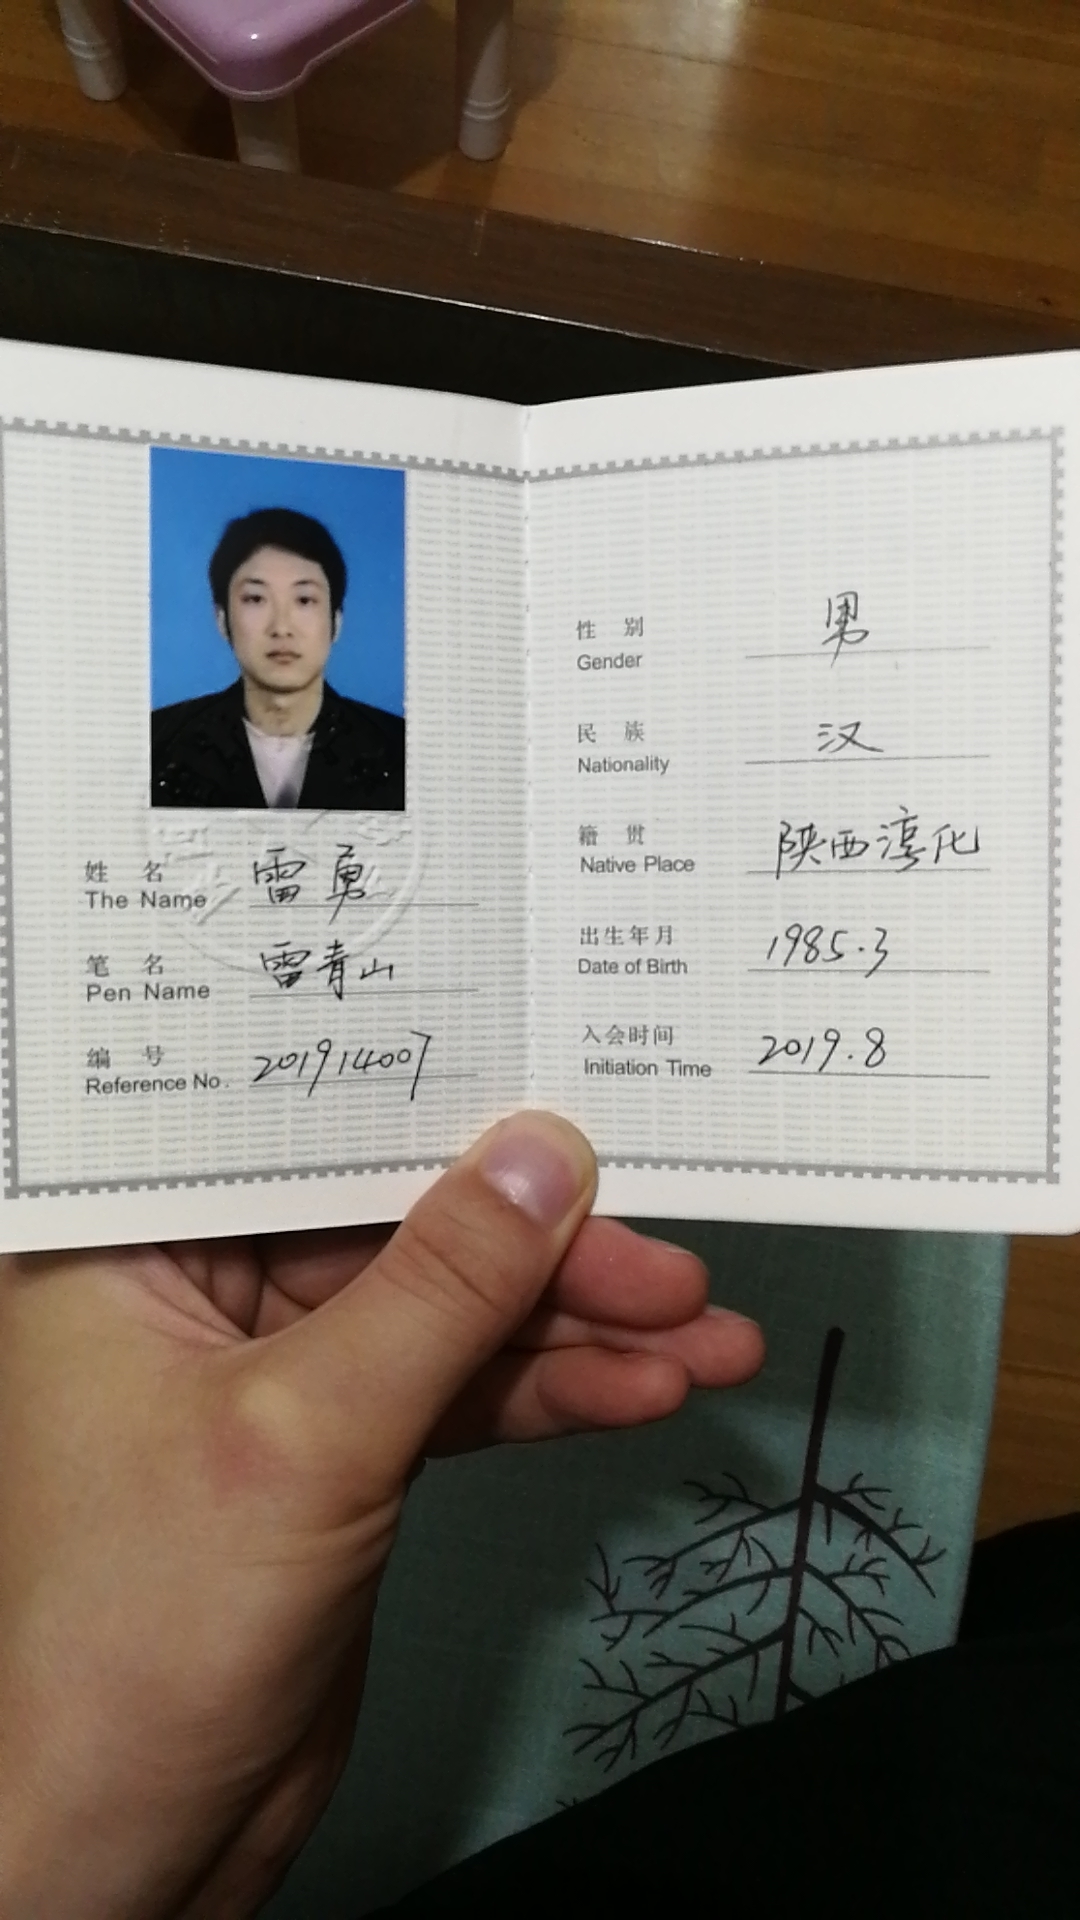 姓 名 雷勇
The Name
笔 名 雷青山
Pen Name
编 号 201914007
Reference No.
性 别 男
Gender
民 族 汉
Nationality
籍 贯 陕西淳化
Native Place
出生年月 1985.3
Date of Birth
入会时间 2019.8
Initiation Time